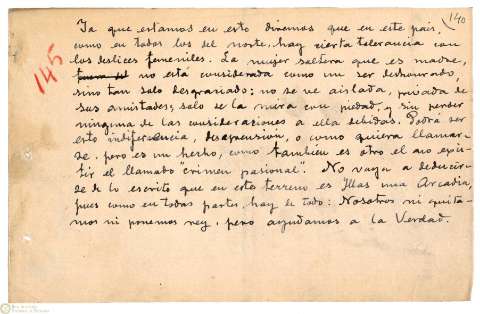 140
145
Ya que estamos en esto diremos que en este país,
como en todos los del norte, hay cierta tolerancia con
los deslices femeniles. La mujer soltera que es madre,
no está considerada como un ser deshonrado,
sino tan solo desgraciado; no se ve aislada, privada de
sus amistades; solo se la mira con piedad y sin perder
ninguna de las consideraciones a ella debidas. Podrá ser
esto indiferencia, despreocupación, o como quiera llamar-
se, pero es un hecho, como también es otro el no exis-
tir el llamado "crimen pasional". No vaya a deducir-
se de lo escrito que en este terreno es Illas una Arcadia,
pues como en todas partes, hay de todo: Nosotros ni quita-
mos ni ponemos rey, pero ayudamos a la Verdad.